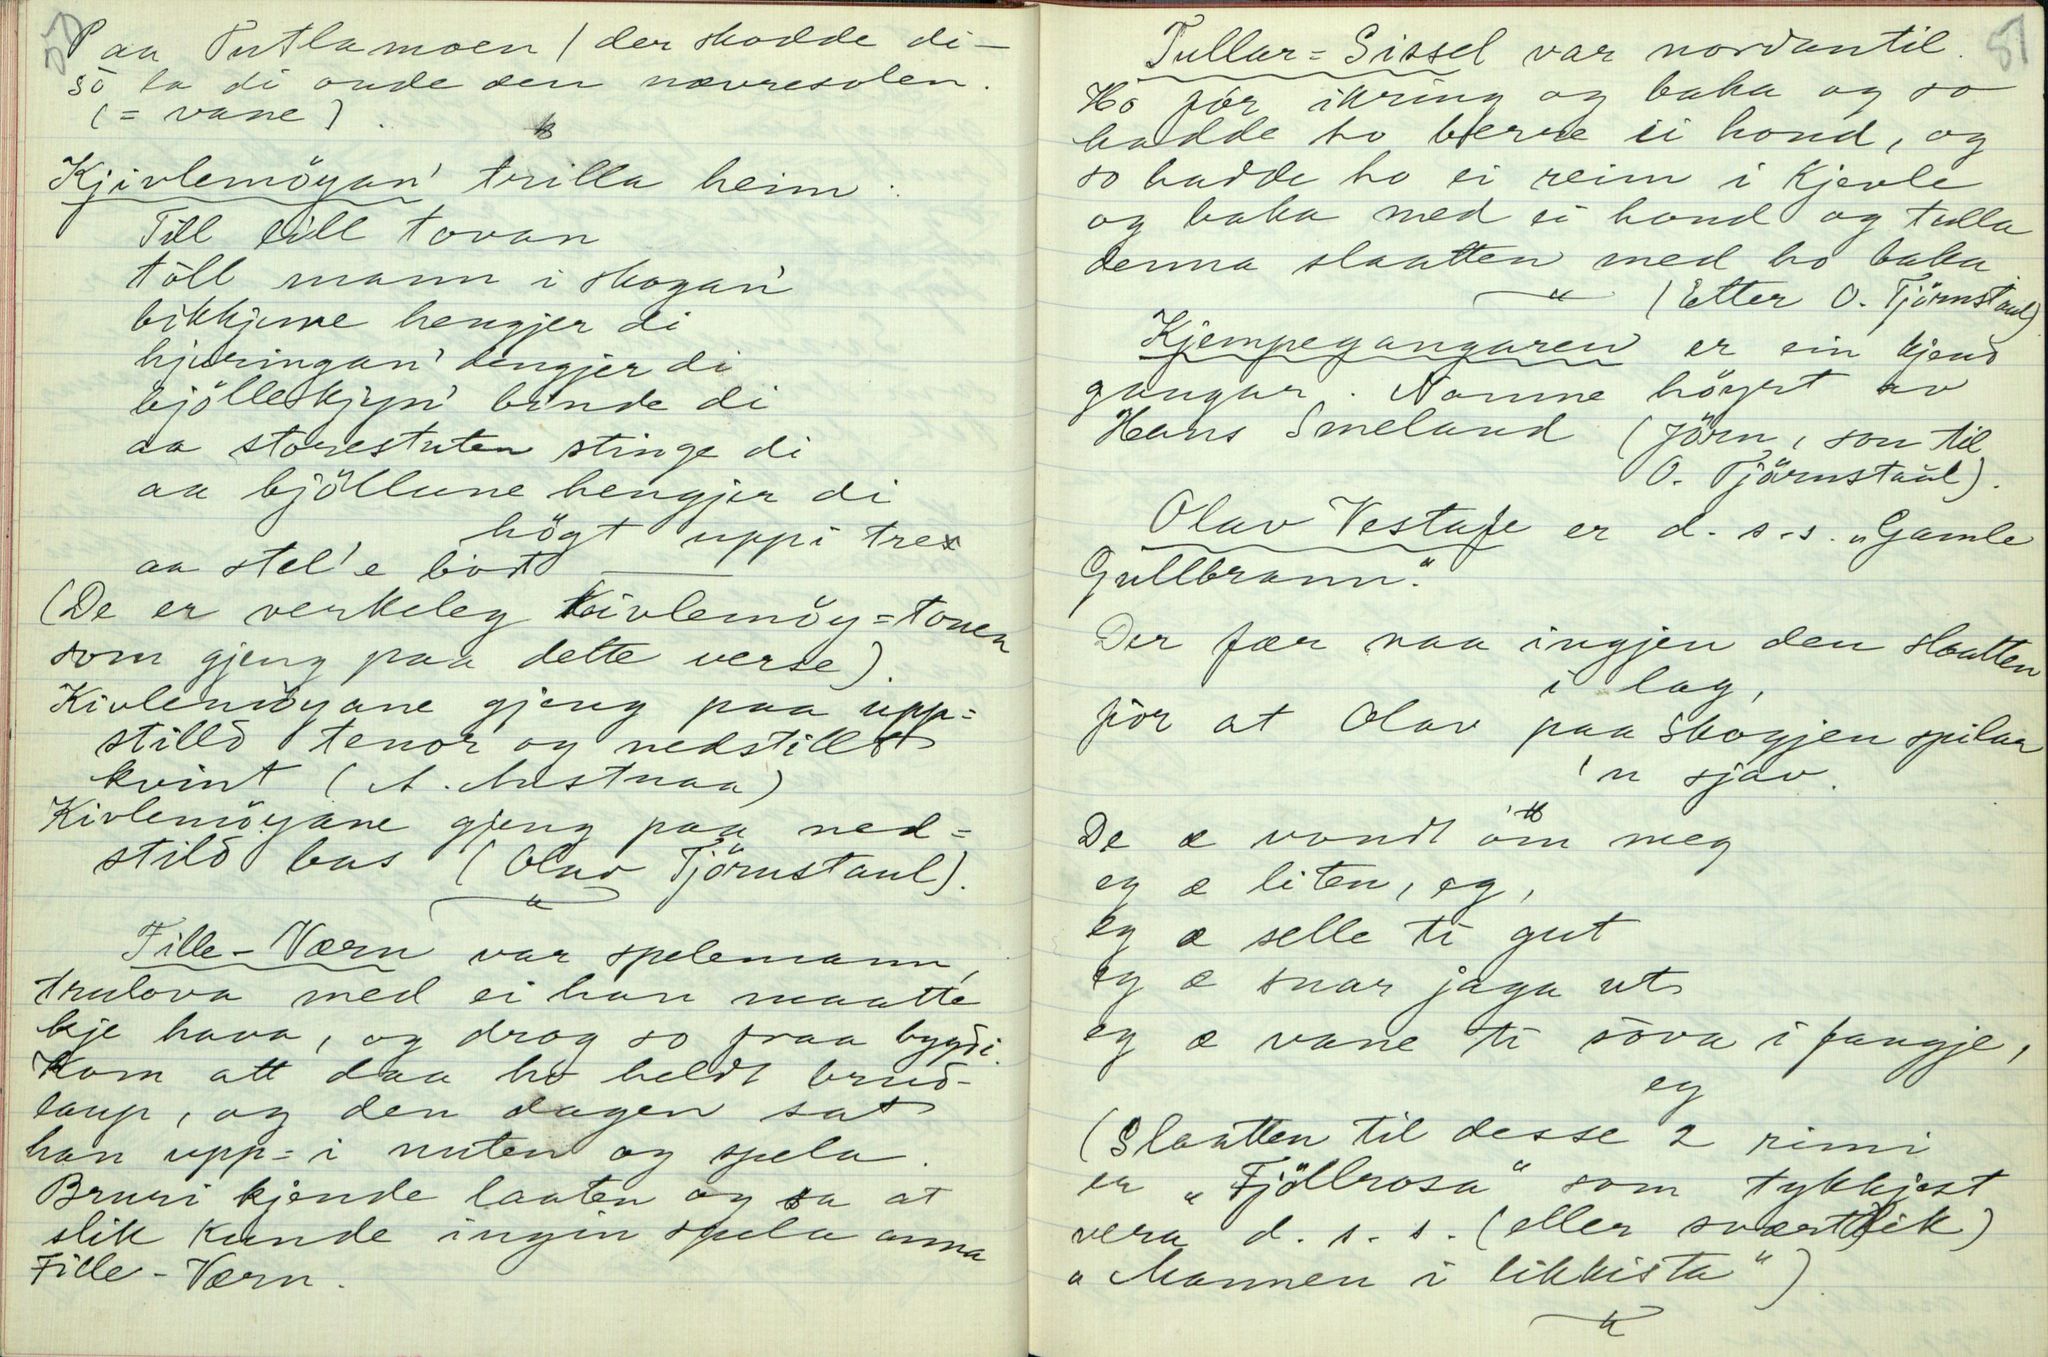 50
Paa Putlamoen / der skodde di –
so la di onde den nævresolen.
(= vane).
Kjivlemöyan' trilla heim:
Till lill tovan
töll mann i skogan'
bikkjune hengjer di
hjuringan' dengjer di
bjölleskjyn' binde di
aa storestuten stinge di
aa bjöllune hengjer di
högt uppi tre
aa stel'e bort
(De er verkeleg Kivlemöy=tonen
som gjeng paa dette verse).
Kivlemöyane gjeng paa upp=
stilld tenor og nedstilld
kvint (A. Mastnaa)
Kivlemöyane gjeng paa ned=
stild bas (Olav Tjörnstaul).
Fille-Værn var spelemann,
trulova med ei han maatte
kje hava, og drog so fraa bygdi.
Kom att daa ho heldt brud-
laup, og den dagen sat
han upp=i nuten og spela.
Bruri kjende laaten og sa at
slik kunde ingin spela anna
Fille-Værn.
51
Tullar=Sissel var nordantil.
Ho fór ikring og baka og so
hadde ho berre ei hond, og
so hadde ho ei reim i kjevle
og baka med ei hond og tulla
denna slaatten med ho baka
(Etter O. Tjörnstaul)
Kjempegangaren er ein kjend
gangar. Namne höyrt av
Hans Smeland (Jörn, son til
O. Tjörnstaul).
Olav Vestafe er d. s. s. „Gamle
Gullbrann."
Der fær naa ingjen den slaatten
i lag,
för at Olav paa Skogjen spilar
'n sjav.
De æ vondt öm meg
eg æ liten, eg,
eg æ selle ti gut
eg æ snar jaga ut
eg æ vane ti sova i fangje,
eg
(Slaatten til desse 2 rimi
er „Fjöllrosa" som tykkjest
vera d. s. s. (eller sværtlik)
„Mannen i likkista")